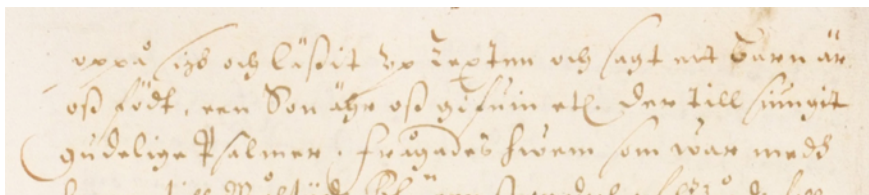 oppå sigh och läsit up Texten och sagt ett Barn är
oss födt, een Son ähr oss gifuin etc. der till siungit
gudelige Psalmer. Frågades hwem som war medh